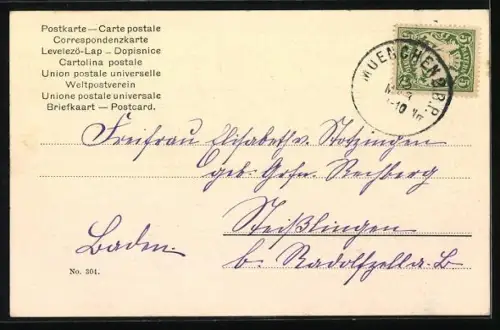 Postkarte — Carte postale
Correspondenzkarte
Levelező-Lap – Dopisnice
Cartolina postale
Union postale universelle
Weltpostverein
Unione postale universale
Briefkaart — Postcard.
5 5
MUENCHEN 2 B.P.
Freifrau Elisabeth v. Stotzingen
geb. Gräfin Rechberg
Steißlingen
Baden.
b. Radolfzell a. B
No. 304.